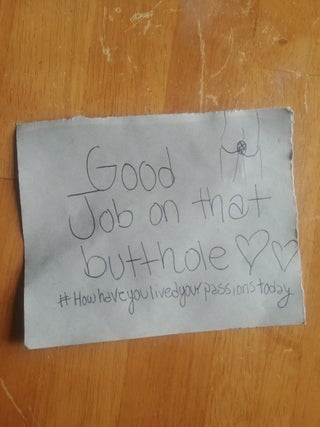 Good
Job on that
butthole
#Howhaveyoulivedyourpassionstoday